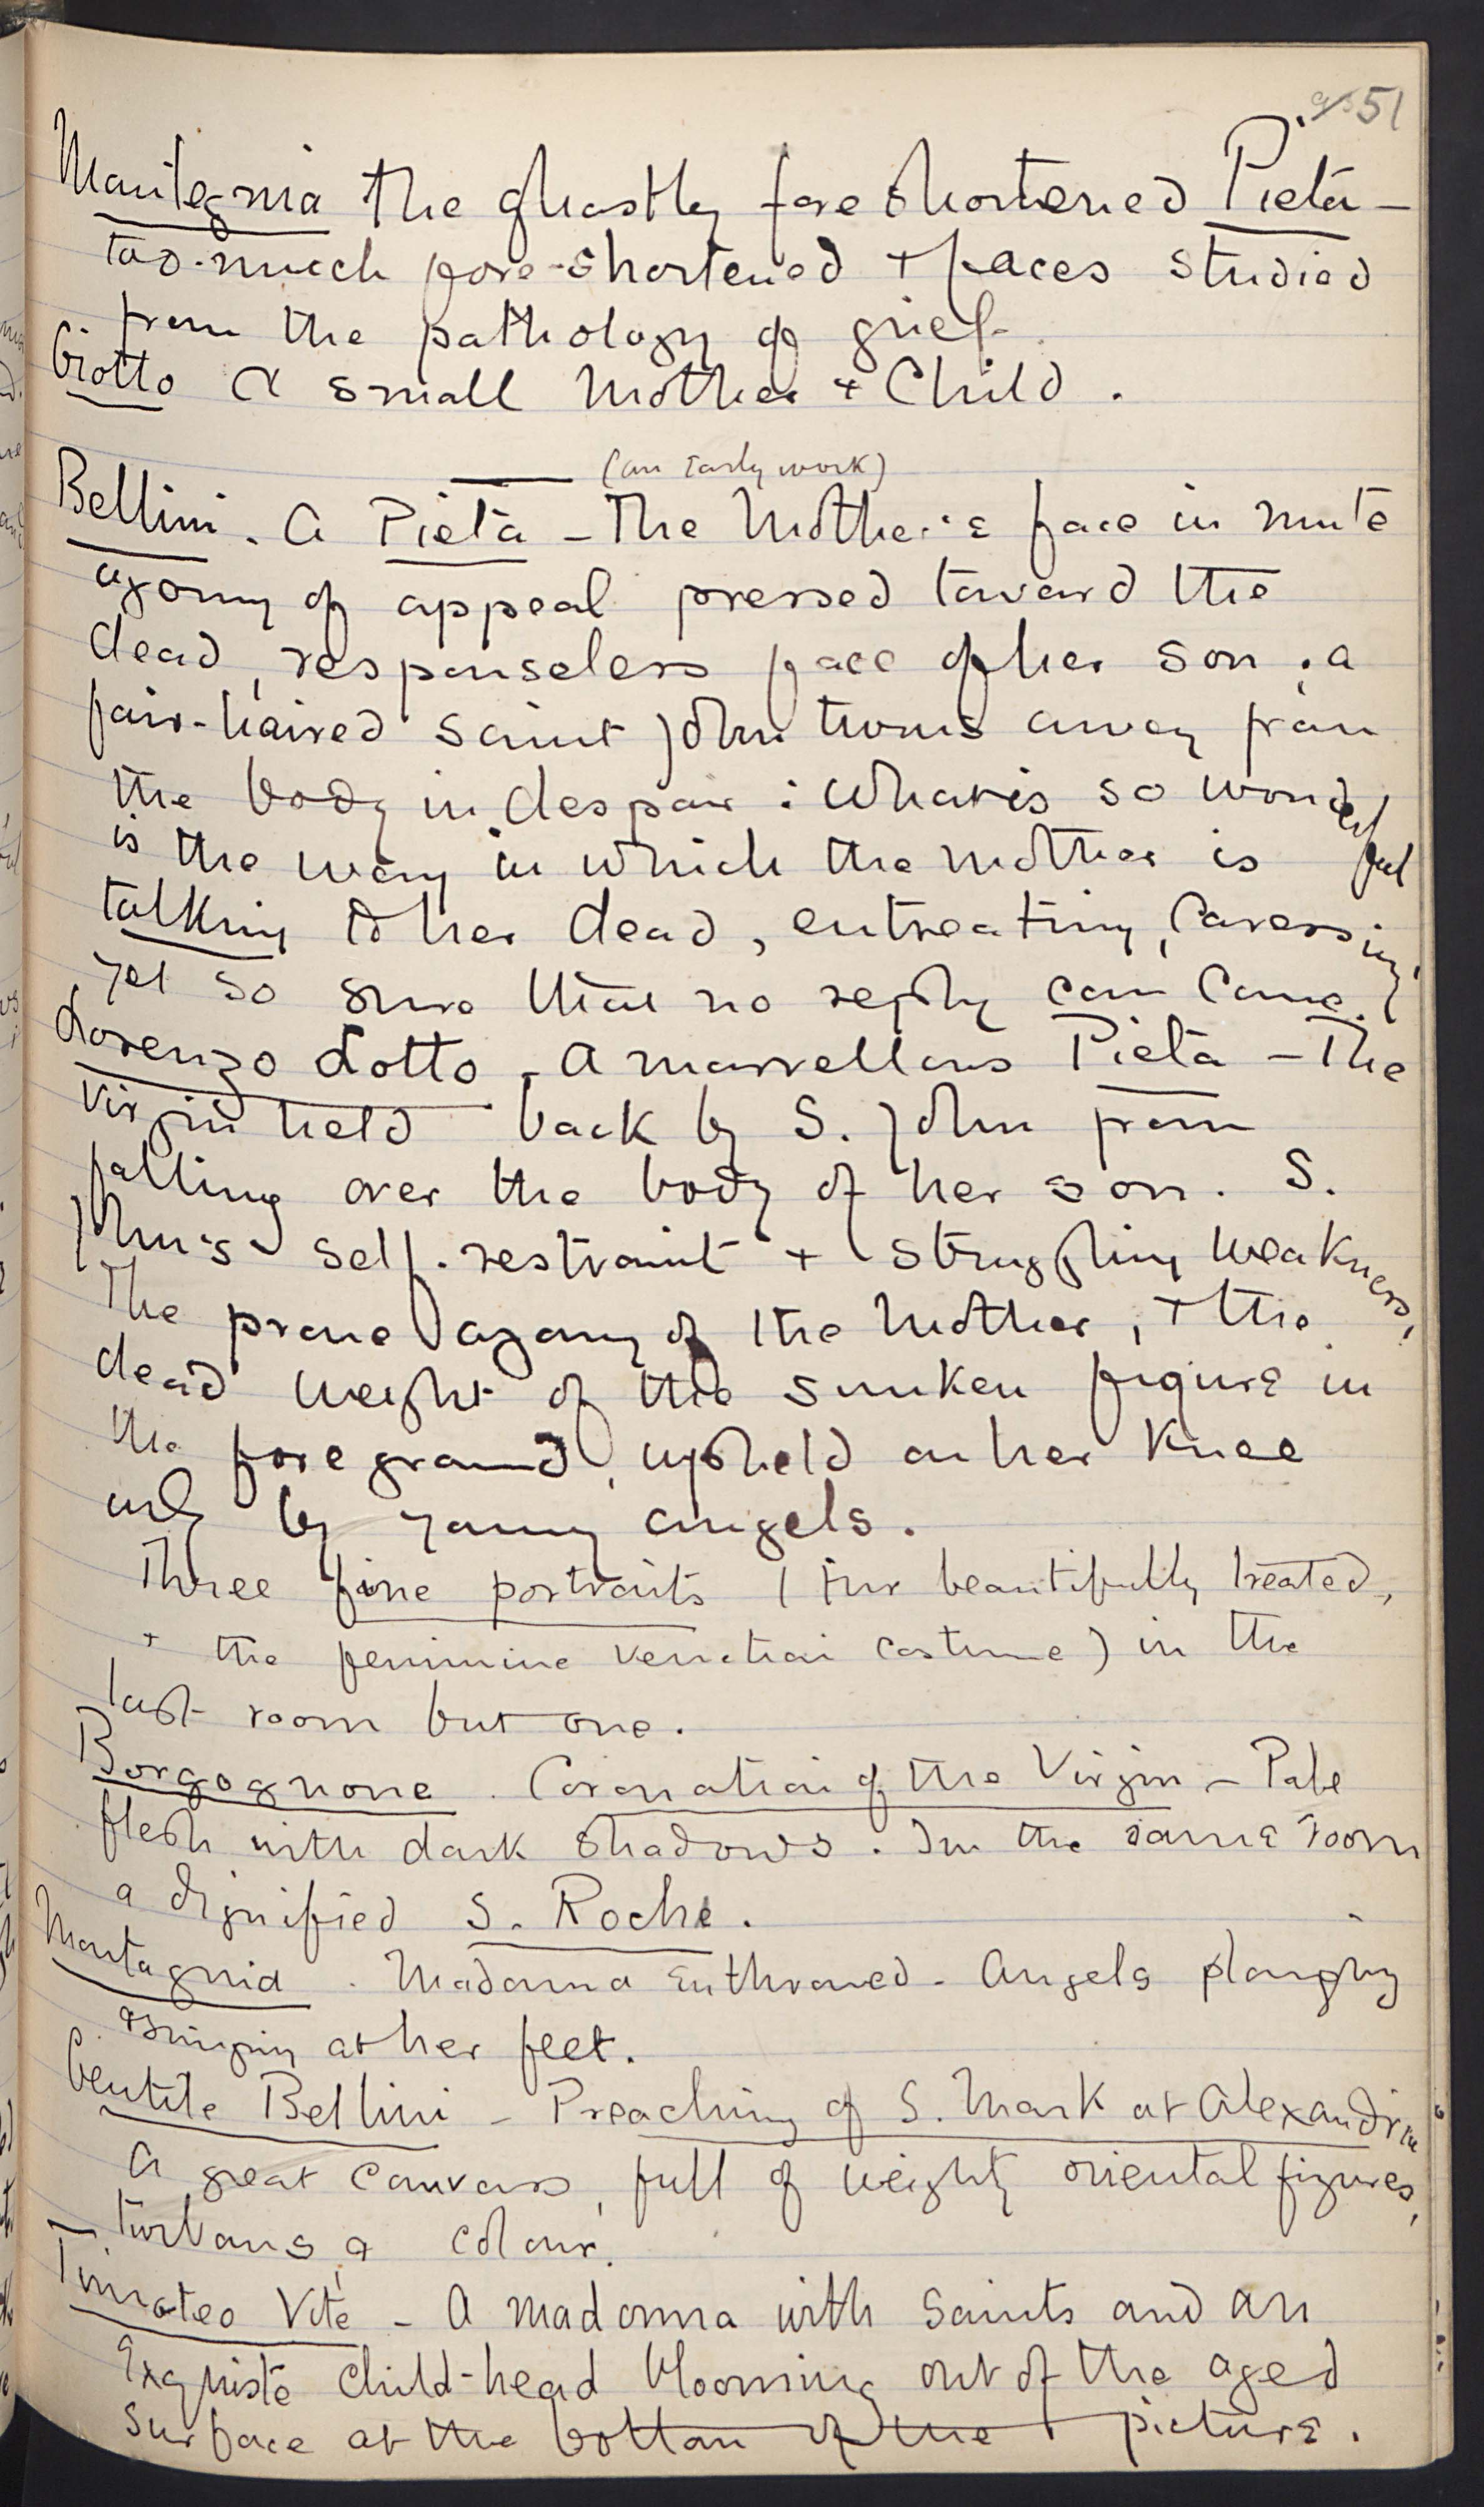 51
Mantegnia The ghastly foreshortened Pietà -
too-much fore-shortened + faces studied
from the pathology of grief.
Giotto A small Mother + Child.
(an Early work)
Bellini. A Pietà - The Mother's face in mute
agony of appeal pressed toward the
dead, responseless face of her son; a
fair-haired Saint John turns away from
the body in despair: What is so wonderful
is the way in which the mother is
talking to her dead, entreating, caressing,
yet so sure that no reply can come.
Lorenzo Lotto - A marvellous Pietà - The
Virgin held back by S. John from
falling over the body of her son. S.
John's self-restraint + struggling weakness,
The prone agony of the Mother, + the
dead weight of the sunken figure in
the foreground, upheld on her knee
only by young angels.
Three fine portraits (fur beautifully treated,
+ the feminine Venetian costume) in the
last room but one.
Borgognone. Coronation of the Virgin - Pale
flesh with dark shadows. In the same room
a dignified S. Roche.
Montagnia. Madonna Enthroned - Angels playing
+ singing at her feet.
Gentile Bellini - Preaching of S. Mark at Alexandria
A great canvass, full of weighty oriental figures,
turbans & colour.
Timoteo Vite - A Madonna with Saints and an
Exquiste child-head blooming out of the aged
surface at the bottom of the picture.